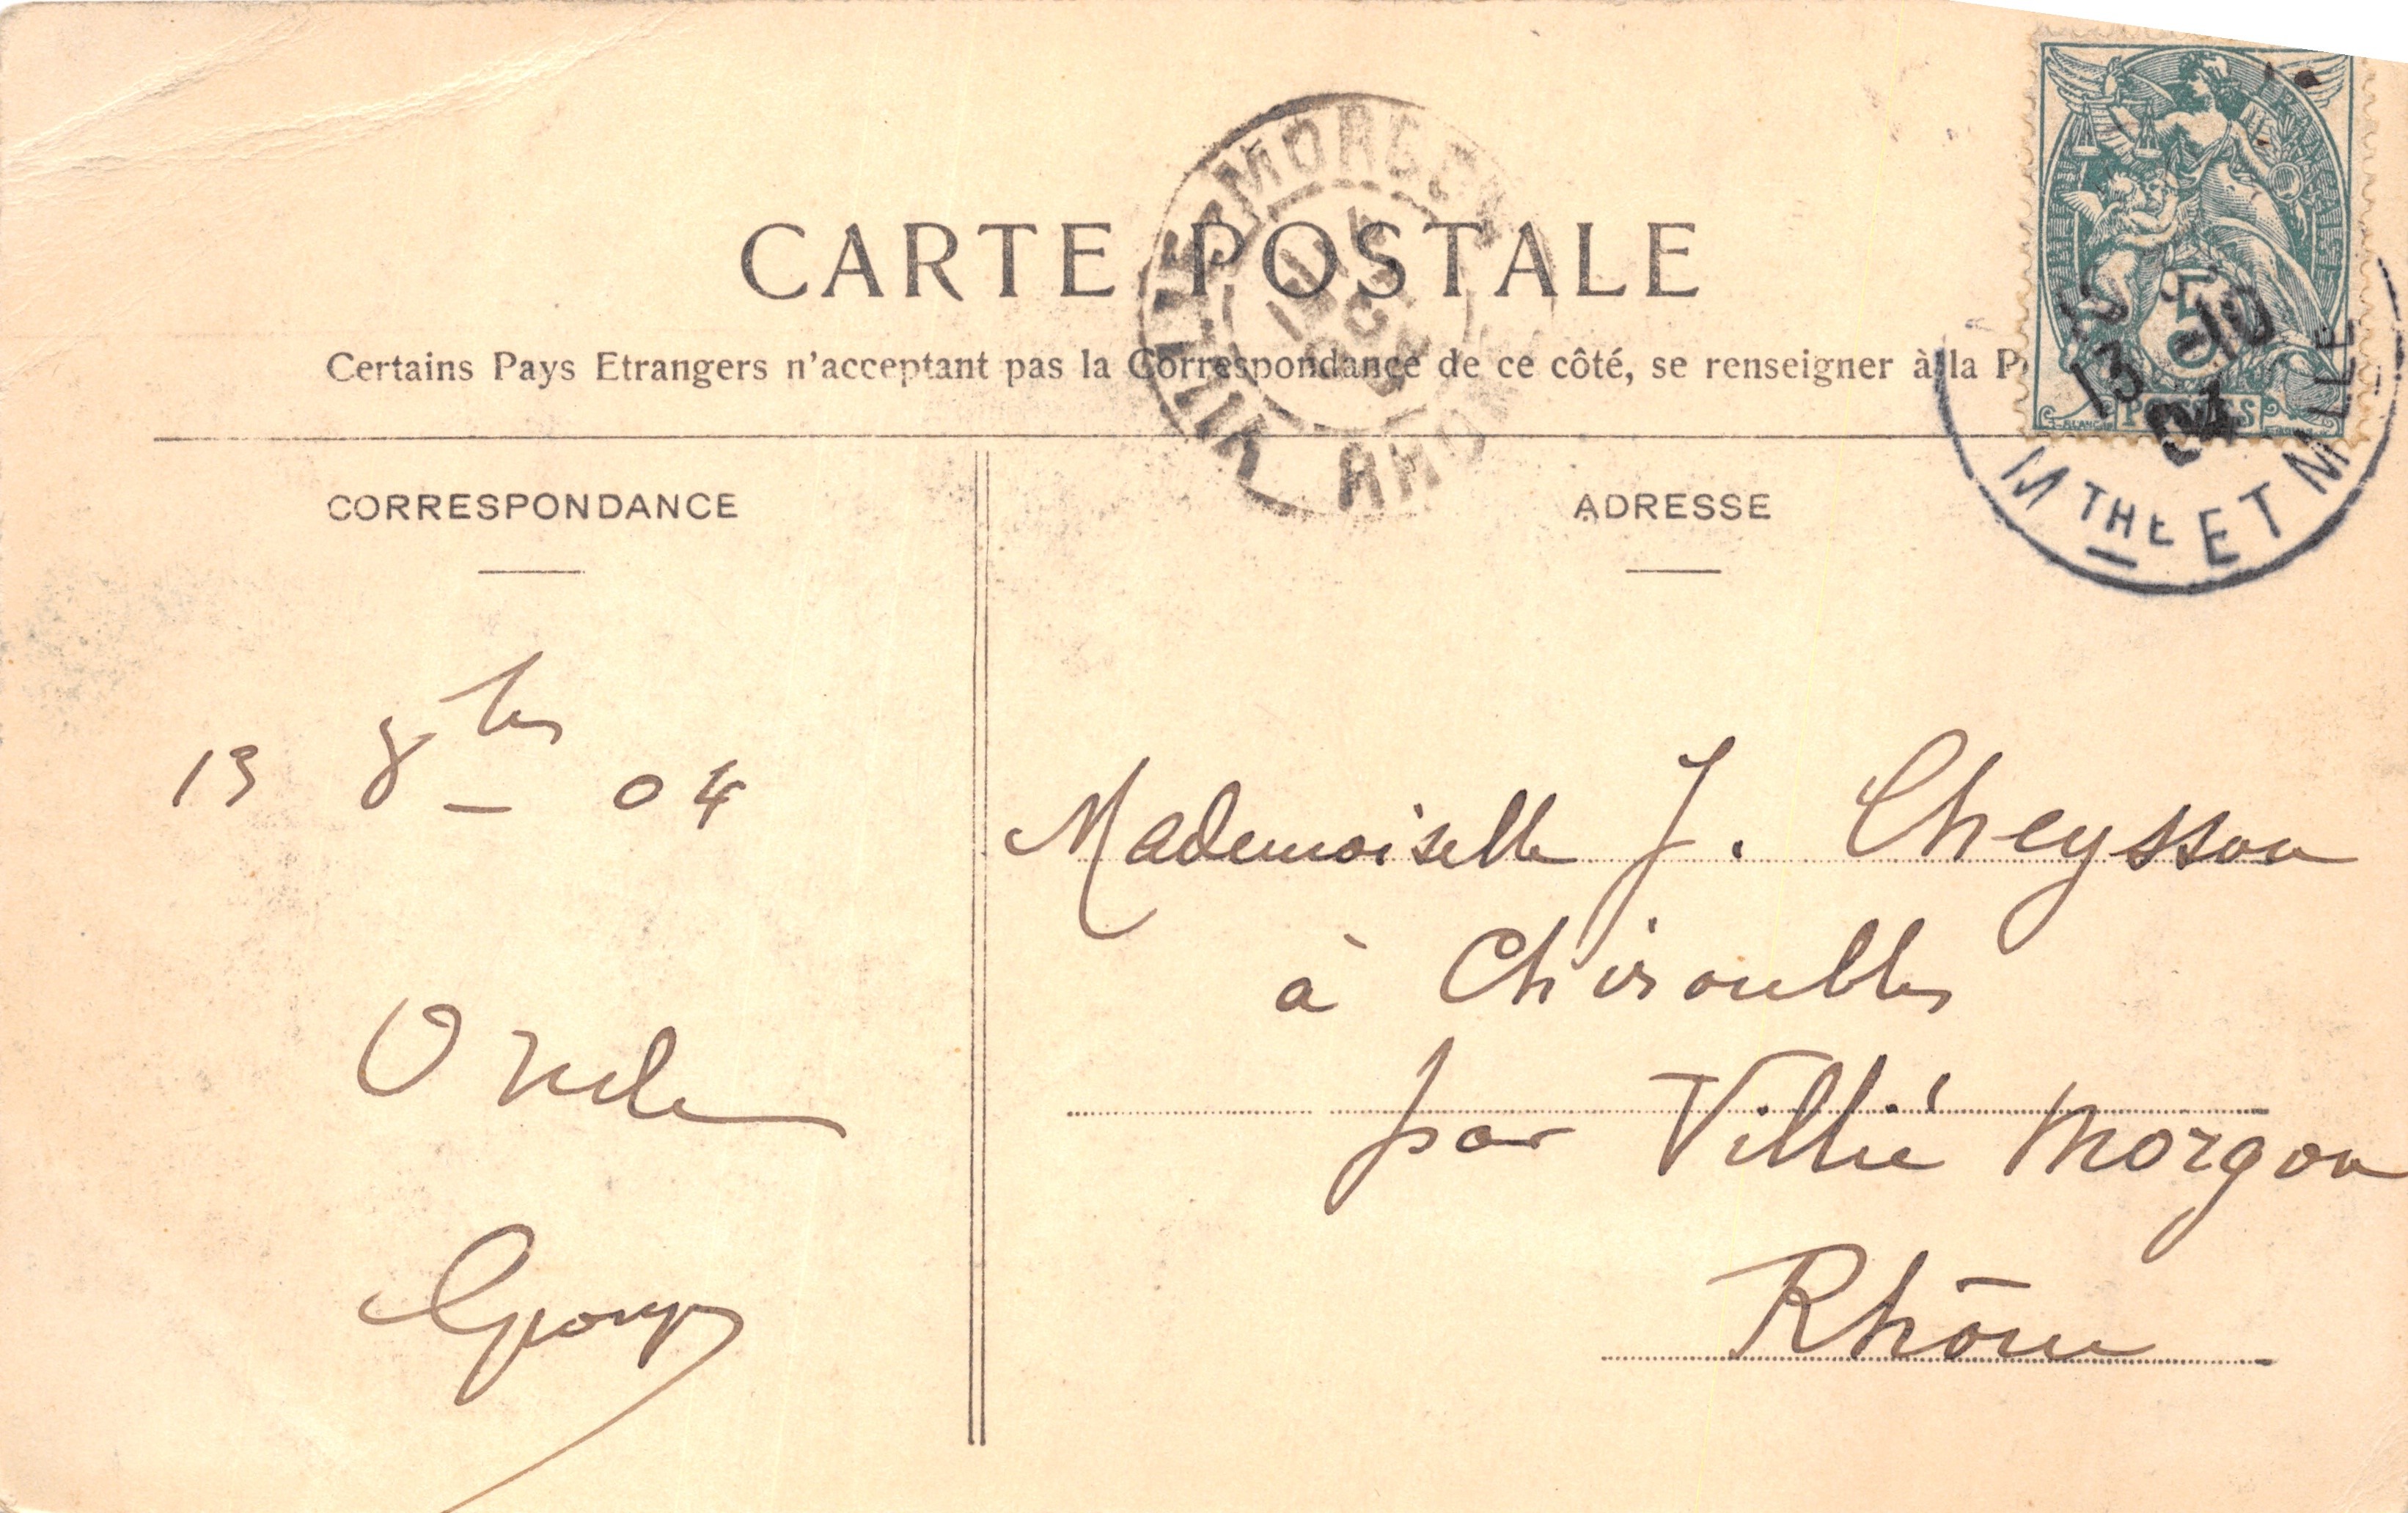 CARTE POSTALE
Certains Pays Etrangers n'acceptant pas la Correspondance de ce côté, se renseigner à la P
CORRESPONDANCE
ADRESSE
13 8bre 04
Oncle
Georges
Mademoiselle J. Cheysson
à Chiroubles
par Villié Morgon
Rhône
VILLIÉ-MORGON
RHONE
5
POSTES
13 -10
04
M THE ET MLLE